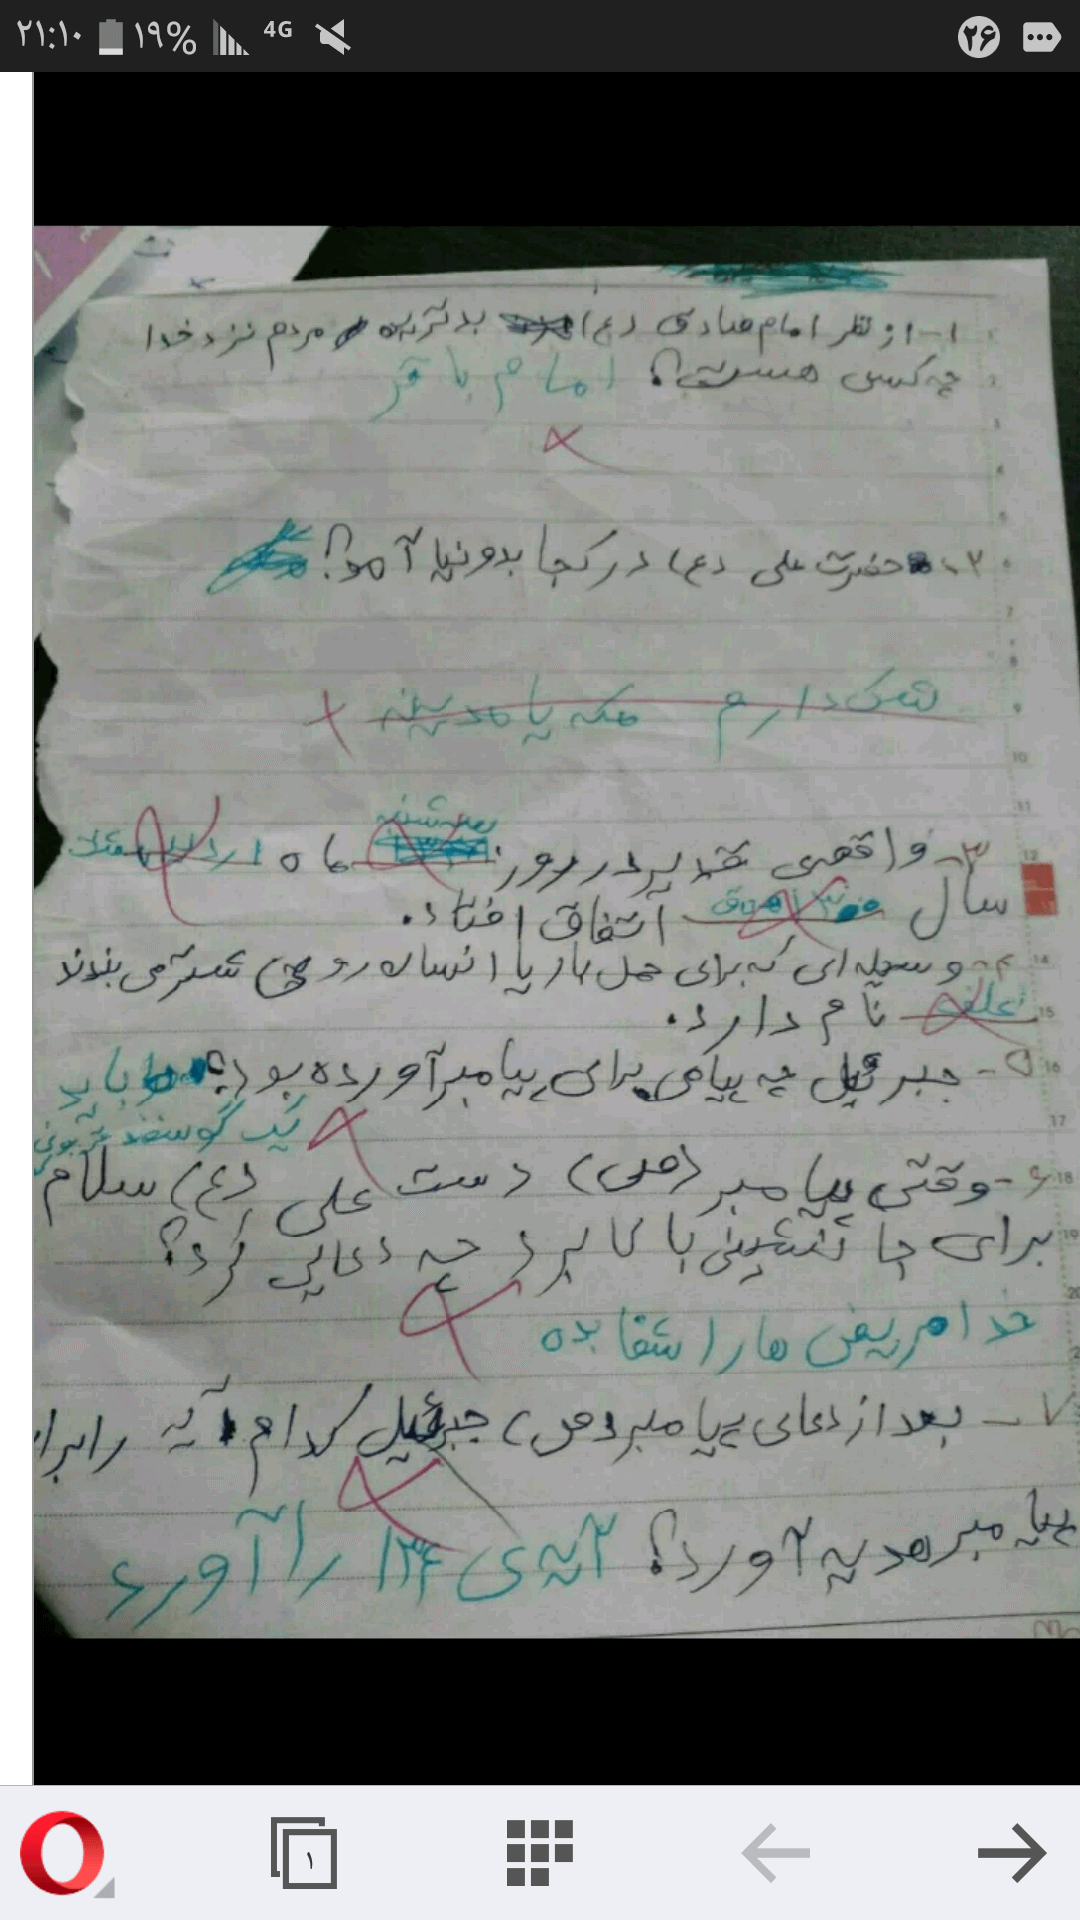 ۲۱:۱۰ ۱۹% 4G ۲۶
۱- از نظر امام صادق (ع) بدترین مردم نزد خدا
چه کسی هست؟ امام باقر
۲- حضرت علی (ع) در کجا بدونیا آمد؟
شک دارم مکه یا مدینه
۳- واقعهی غدیر در روز سه شنبه ماه
سال اتفاق افتاد.
۴- وسیله ای که برای حمل بار یا انسان روی شتر می بندند
علف نام دارد.
۵- جبرئیل چه پیامی برای پیامبر آورده بود؟ باید
یک گوسفند قربونی
۶- وقتی پیامبر (ص) دست علی (ع) سلام
برای جا نشینی بالا برد چه دعایی کرد؟
خدا مریض ها را شفا بده
۷- بعد از دعای پیامبر (ص) جبرئیل کدام آیه را برای
پیامبر هدیه آورد؟ آیه ی ۱۳۴ را آورد
۱